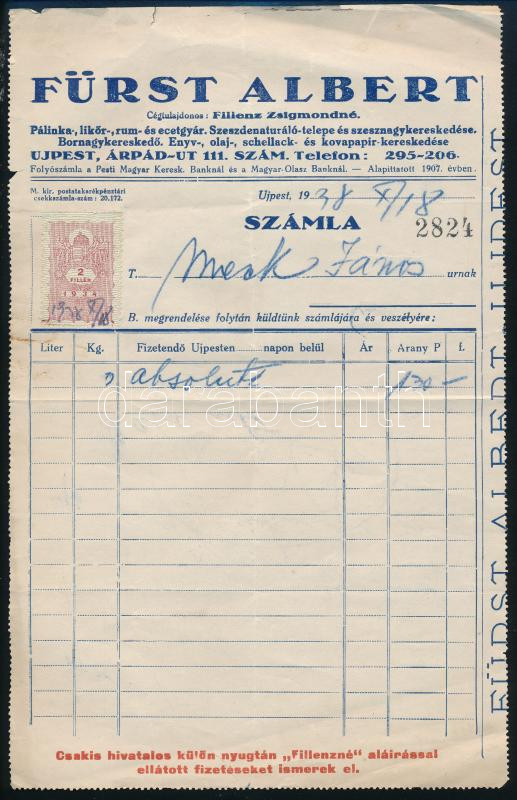 FÜRST ALBERT
Cégtulajdonos: Fillenz Zsigmondné.
Pálinka-, likőr-, rum- és ecetgyár. Szeszdenaturáló-telepe és szesznagykereskedése.
Bornagykereskedő. Enyv-, olaj-, schellack- és kovapapír-kereskedése
UJPEST, ÁRPÁD-UT 111. SZÁM. Telefon: 295-206.
Folyószámla a Pesti Magyar Keresk. Banknál és a Magyar-Olasz Banknál. — Alapittatott 1907. évben.
M. kir. postatakarékpénztári
csekkszámla-szám: 20.172.
Ujpest, 1938 X/18
SZÁMLA
2824
2
FILLÉR
1934
1938 X/18
T. Meck János urnak
B. megrendelése folytán küldtünk számlájára és veszélyére:
Liter Kg. Fizetendő Ujpesten napon belül Ár Arany P f.
absolute 130 —
darabanth
FÜRST ALBERT UJPEST
Csakis hivatalos külön nyugtán „Fillenzné" aláirással
ellátott fizetéseket ismerek el.